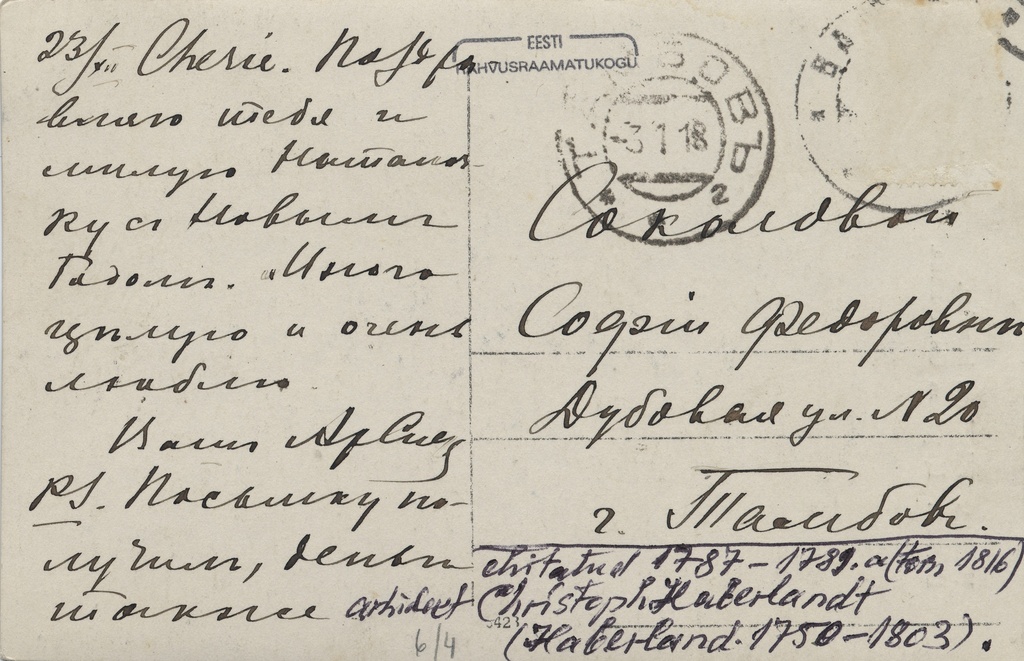 23/XII Cherie. Поздра
вляю тебя и
милую Наталоч-
ку с Новымъ
Годомъ. Много
цѣлую и очень
люблю
Вашъ Арвидъ
PS. Посылку по-
лучилъ, деньги
также
EESTI
RAHVUSRAAMATUKOGU
ТАМБОВЪ
-3 1 18
2
Соколовой
Софіи Федоровнѣ
Дубовая ул. N 20
г. Тамбовъ.
ehitatud 1787-1789. a (torn 1816)
arhitect Christoph Haberlandt
(Haberland. 1750-1803).
6/4